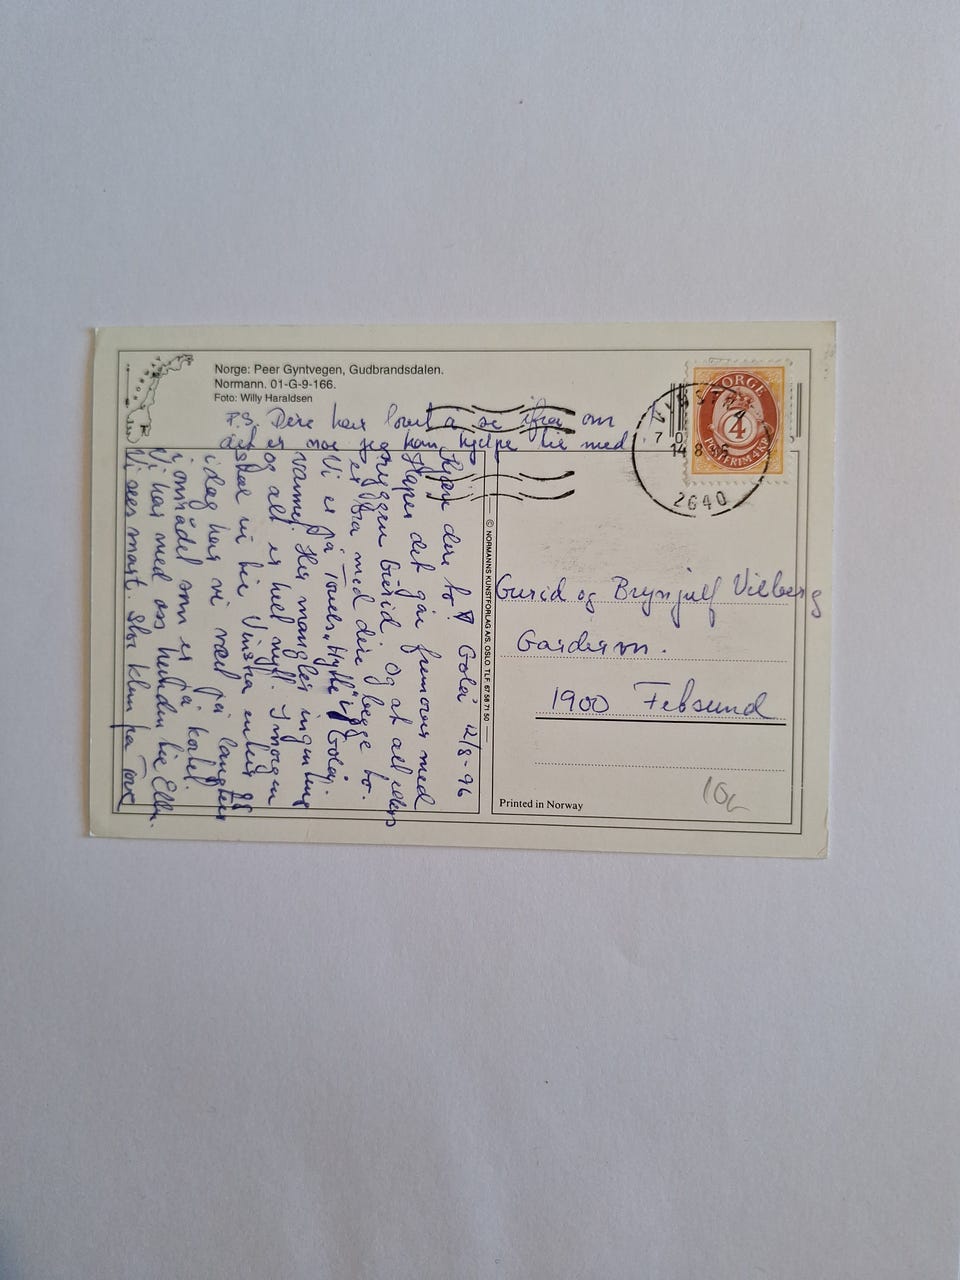 Norge: Peer Gyntvegen, Gudbrandsdalen.
Normann. 01-G-9-166.
Foto: Willy Haraldsen
P.S. Dere har lovet å se ifra om
det er noe jeg kan hjelpe til med
Golå 12/8-96
Kjære dere to!
Håper det går fremover med
ryggen Gurid. Og at alt ellers
er bra med dere begge to.
Vi er på Toves "Hytte" i Golå.
vannet. Her mangler ingenting
og alt er helt nytt. I morgen
skal vi til Vinstra en tur
idag har vi vært på langtur
i området som er på kartet.
Vi har med oss hunden til Ellen.
Vi sees snart. Stor klem fra Tove
© NORMANNS KUNSTFORLAG A/S. OSLO. TLF. 67 58 71 50
NORGE
4
POSTFRIM
14 8
2640
Gurid og Brynjulf Vilberg
Garderm.
1900 Fetsund
Printed in Norway
10,-